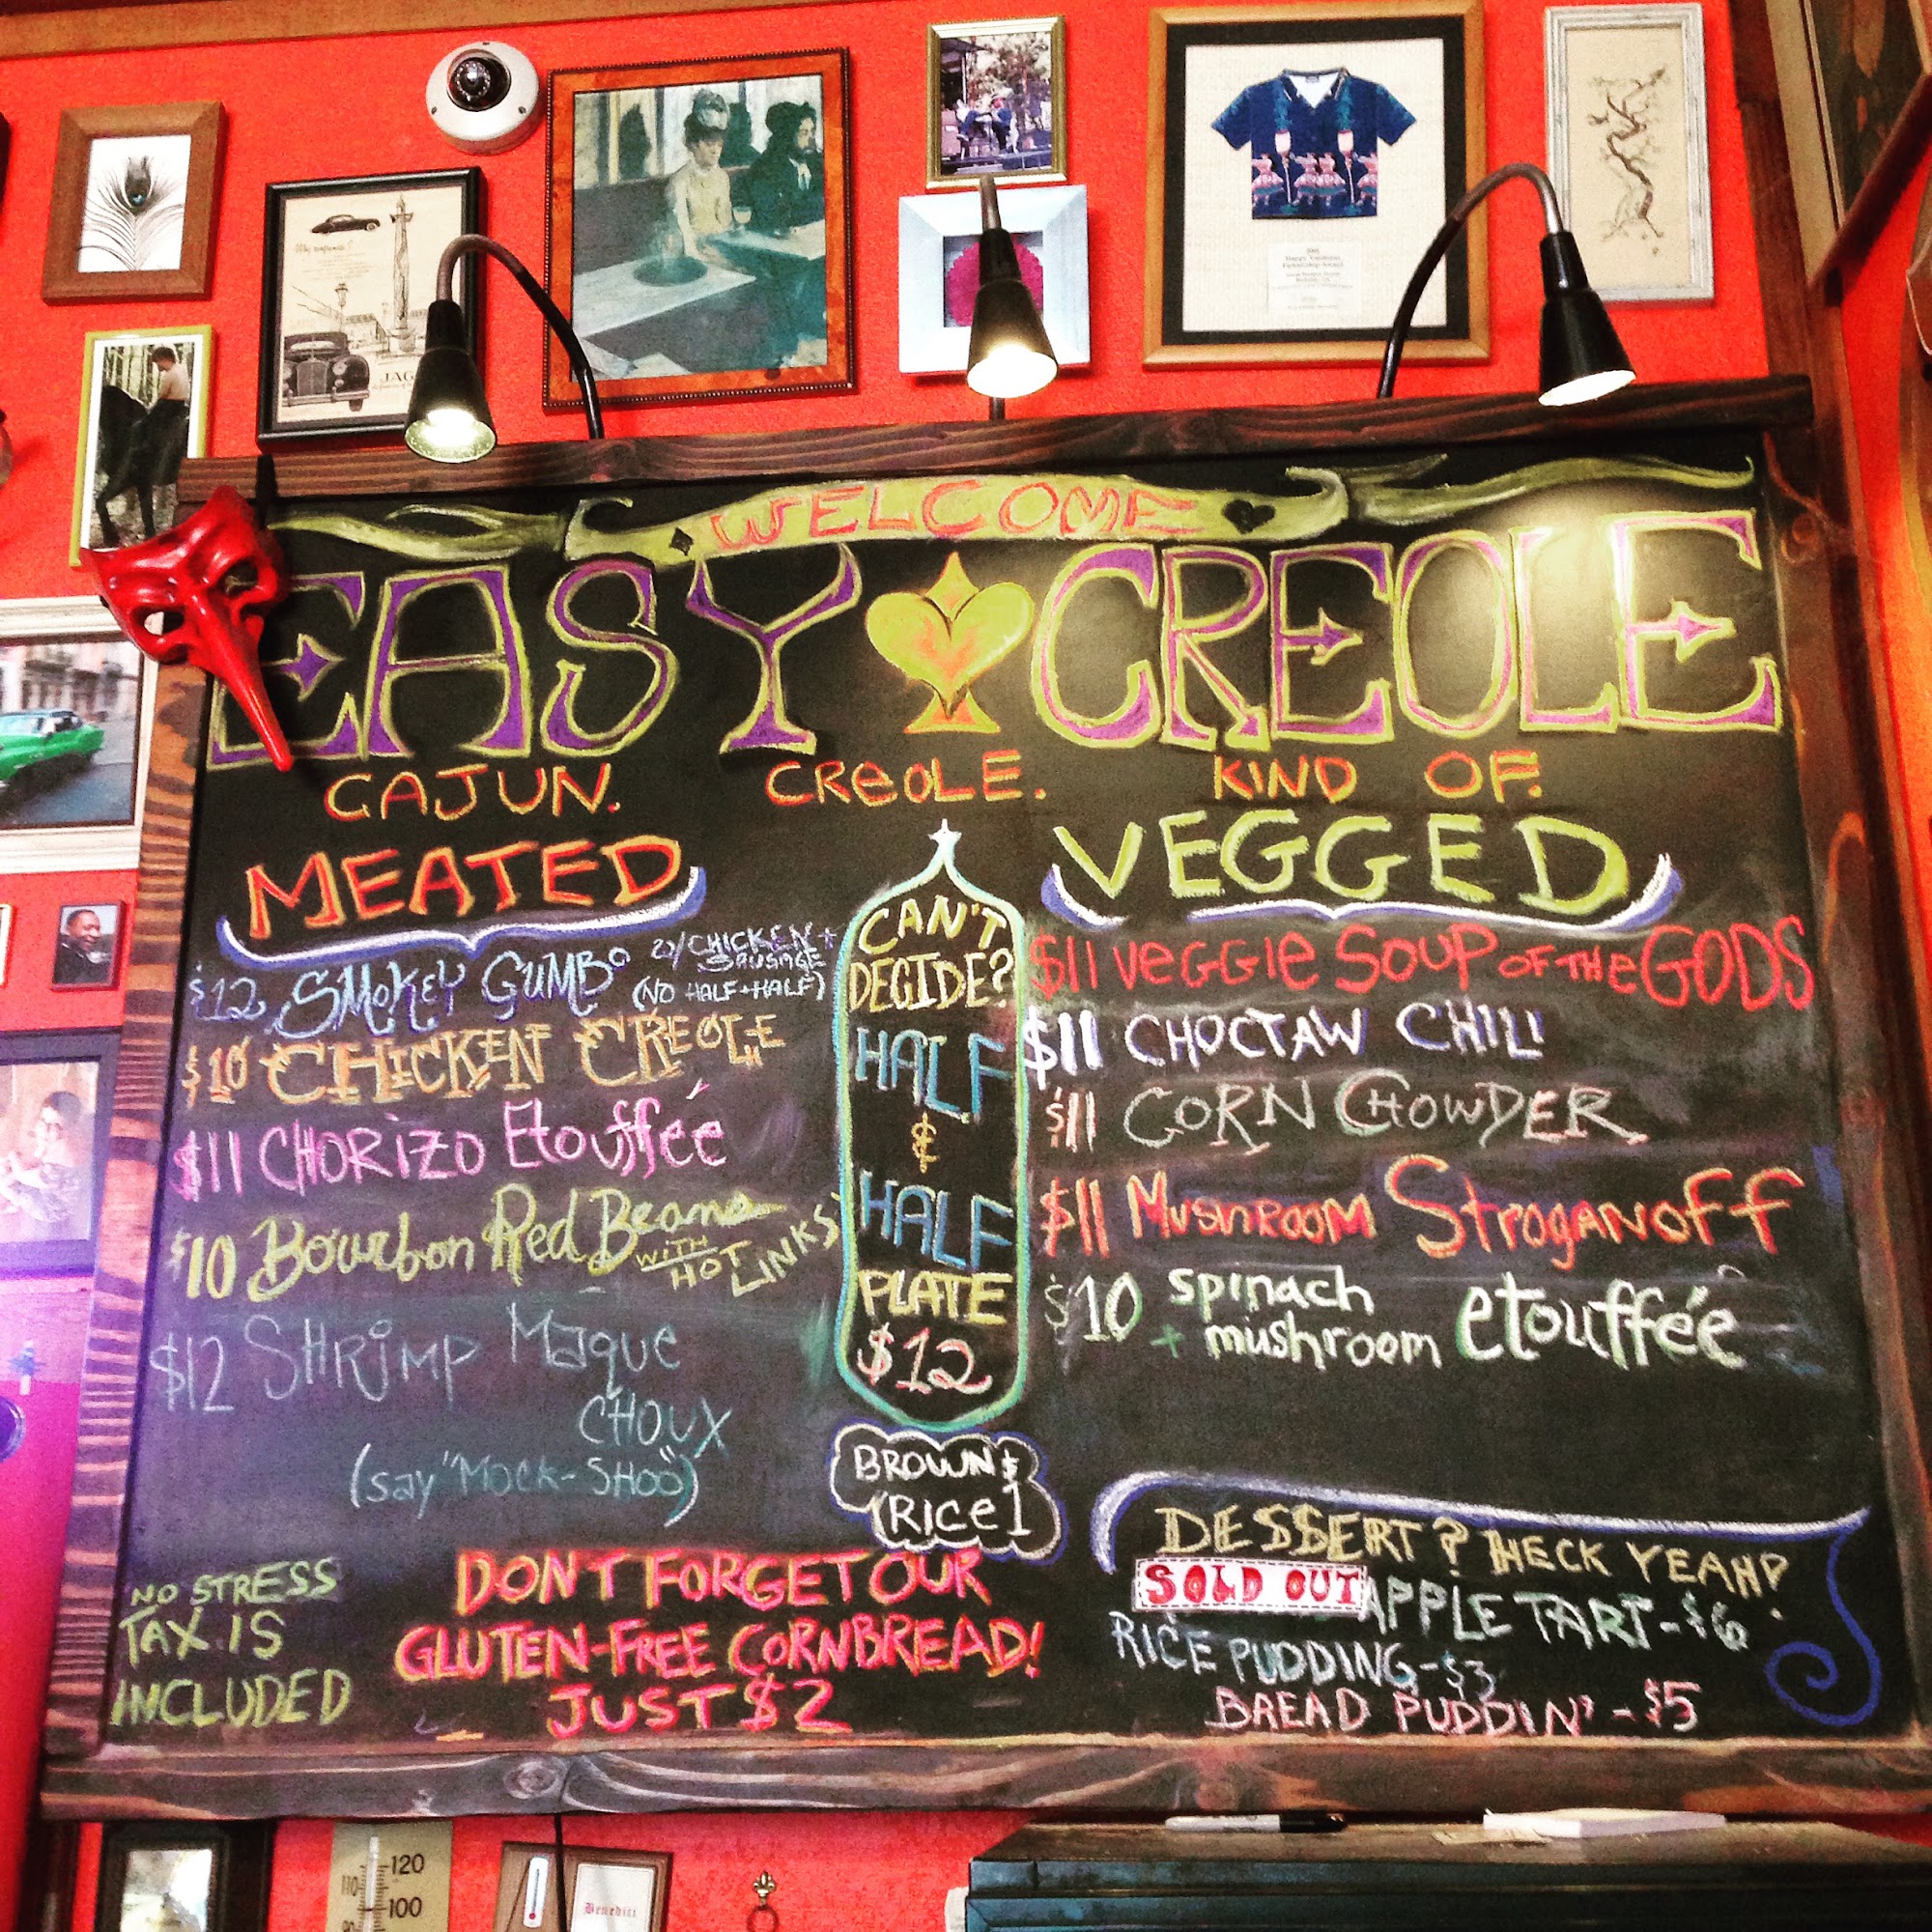 Why
JAG
WELCOME
EASY CREOLE
CAJUN. CREOLE. KIND OF.
MEATED
$12 SMOKEY GUMBO W/CHICKEN + SAUSAGE
(NO HALF + HALF)
$10 CHICKEN CREOLE
$11 CHORIZO Etouffée
$10 Bourbon Red Beans WITH HOT LINKS
$12 SHRIMP Maque
CHOUX
(say "MOCK-SHOO")
CAN'T
DECIDE?
HALF
&
HALF
PLATE
$12
BROWN $
RICE 1
VEGGED
$11 VEGGIE SOUP OF THE GODS
$11 CHOCTAW CHILI
$11 CORN CHOWDER
$11 MUSHROOM STROGANOFF
$10 spinach + mushroom etouffée
NO STRESS
TAX IS
INCLUDED
DON'T FORGET OUR
GLUTEN-FREE CORNBREAD!
JUST $2
DESSERT? HECK YEAH!
SOLD OUT APPLE TART - $6
RICE PUDDING - $3
BREAD PUDDIN' - $5
120
110
100
90
Benedict